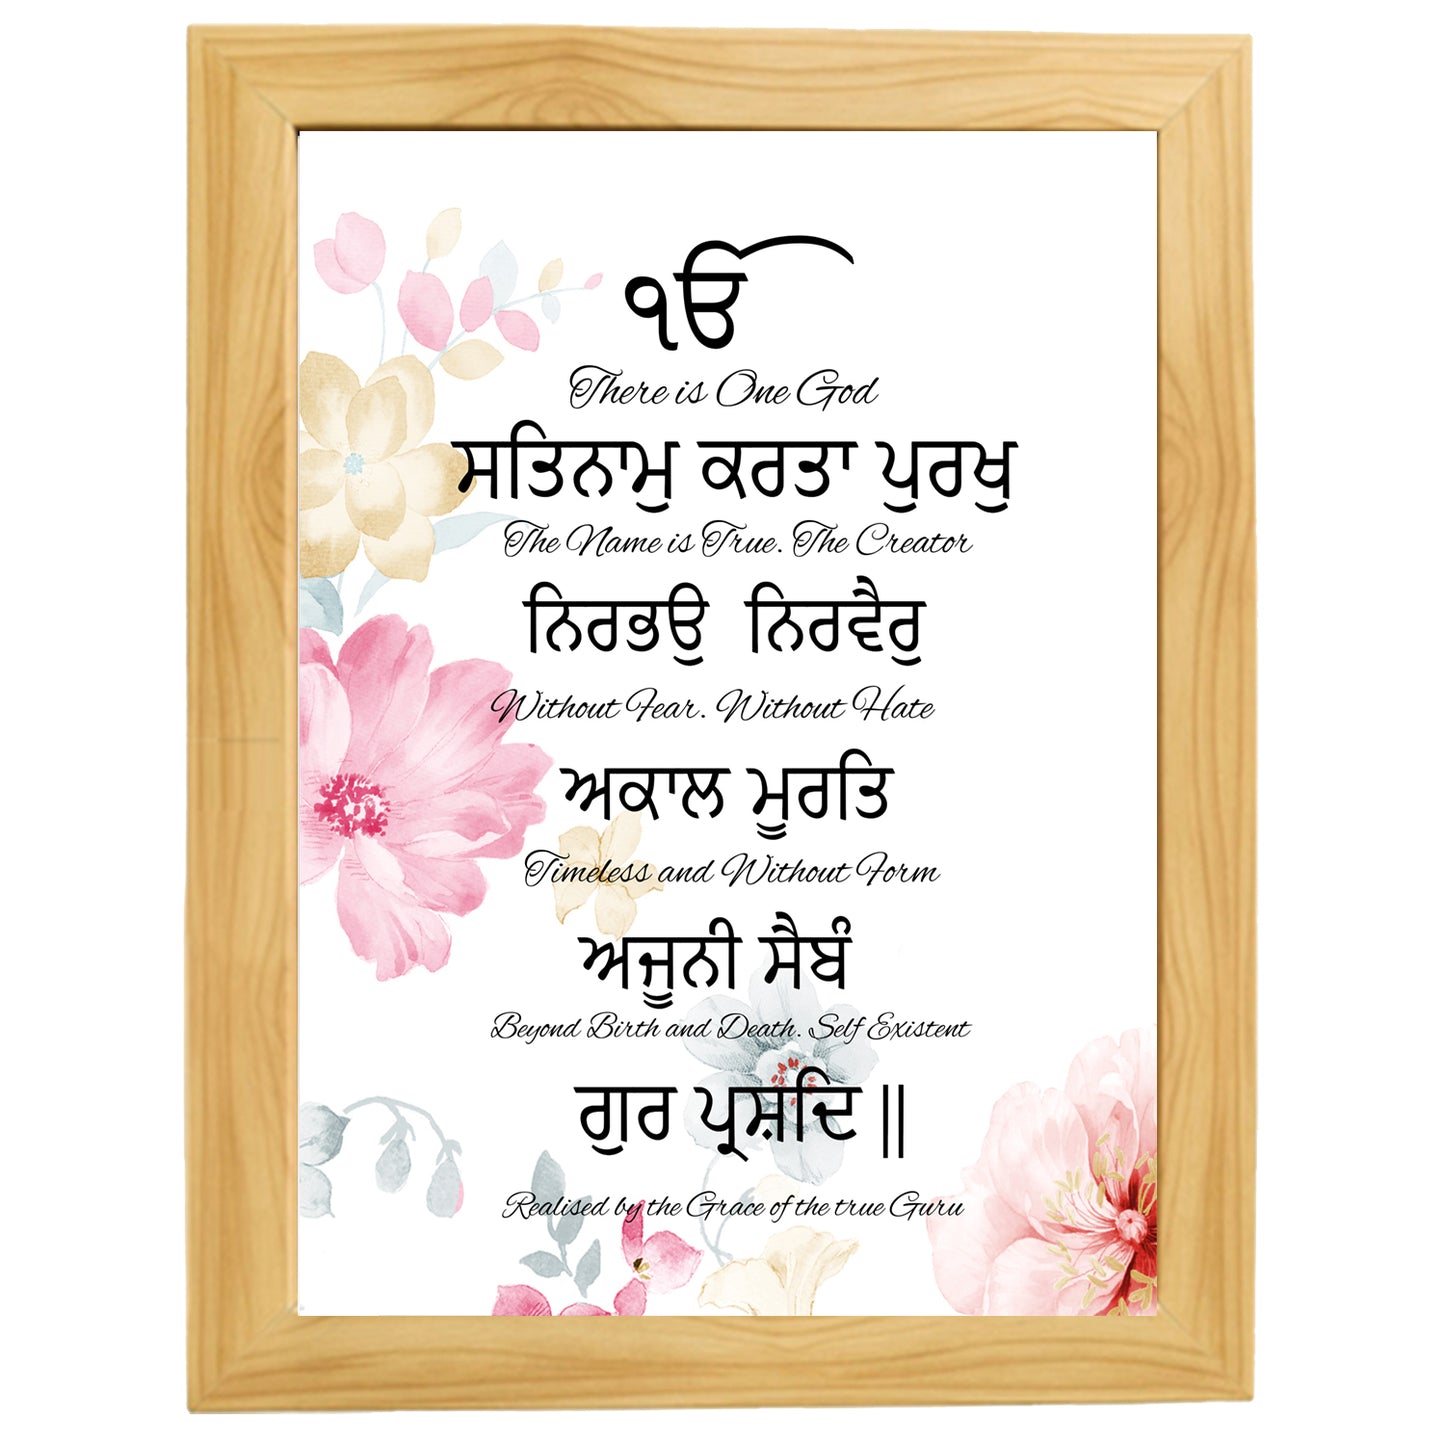 ੴ
There is One God
ਸਤਿਨਾਮੁ ਕਰਤਾ ਪੁਰਖੁ
The Name is True. The Creator
ਨਿਰਭਉ ਨਿਰਵੈਰੁ
Without Fear. Without Hate
ਅਕਾਲ ਮੂਰਤਿ
Timeless and Without Form
ਅਜੂਨੀ ਸੈਬੰ
Beyond Birth and Death. Self Existent
ਗੁਰ ਪ੍ਰਸ਼ਦਿ ||
Realised by the Grace of the true Guru